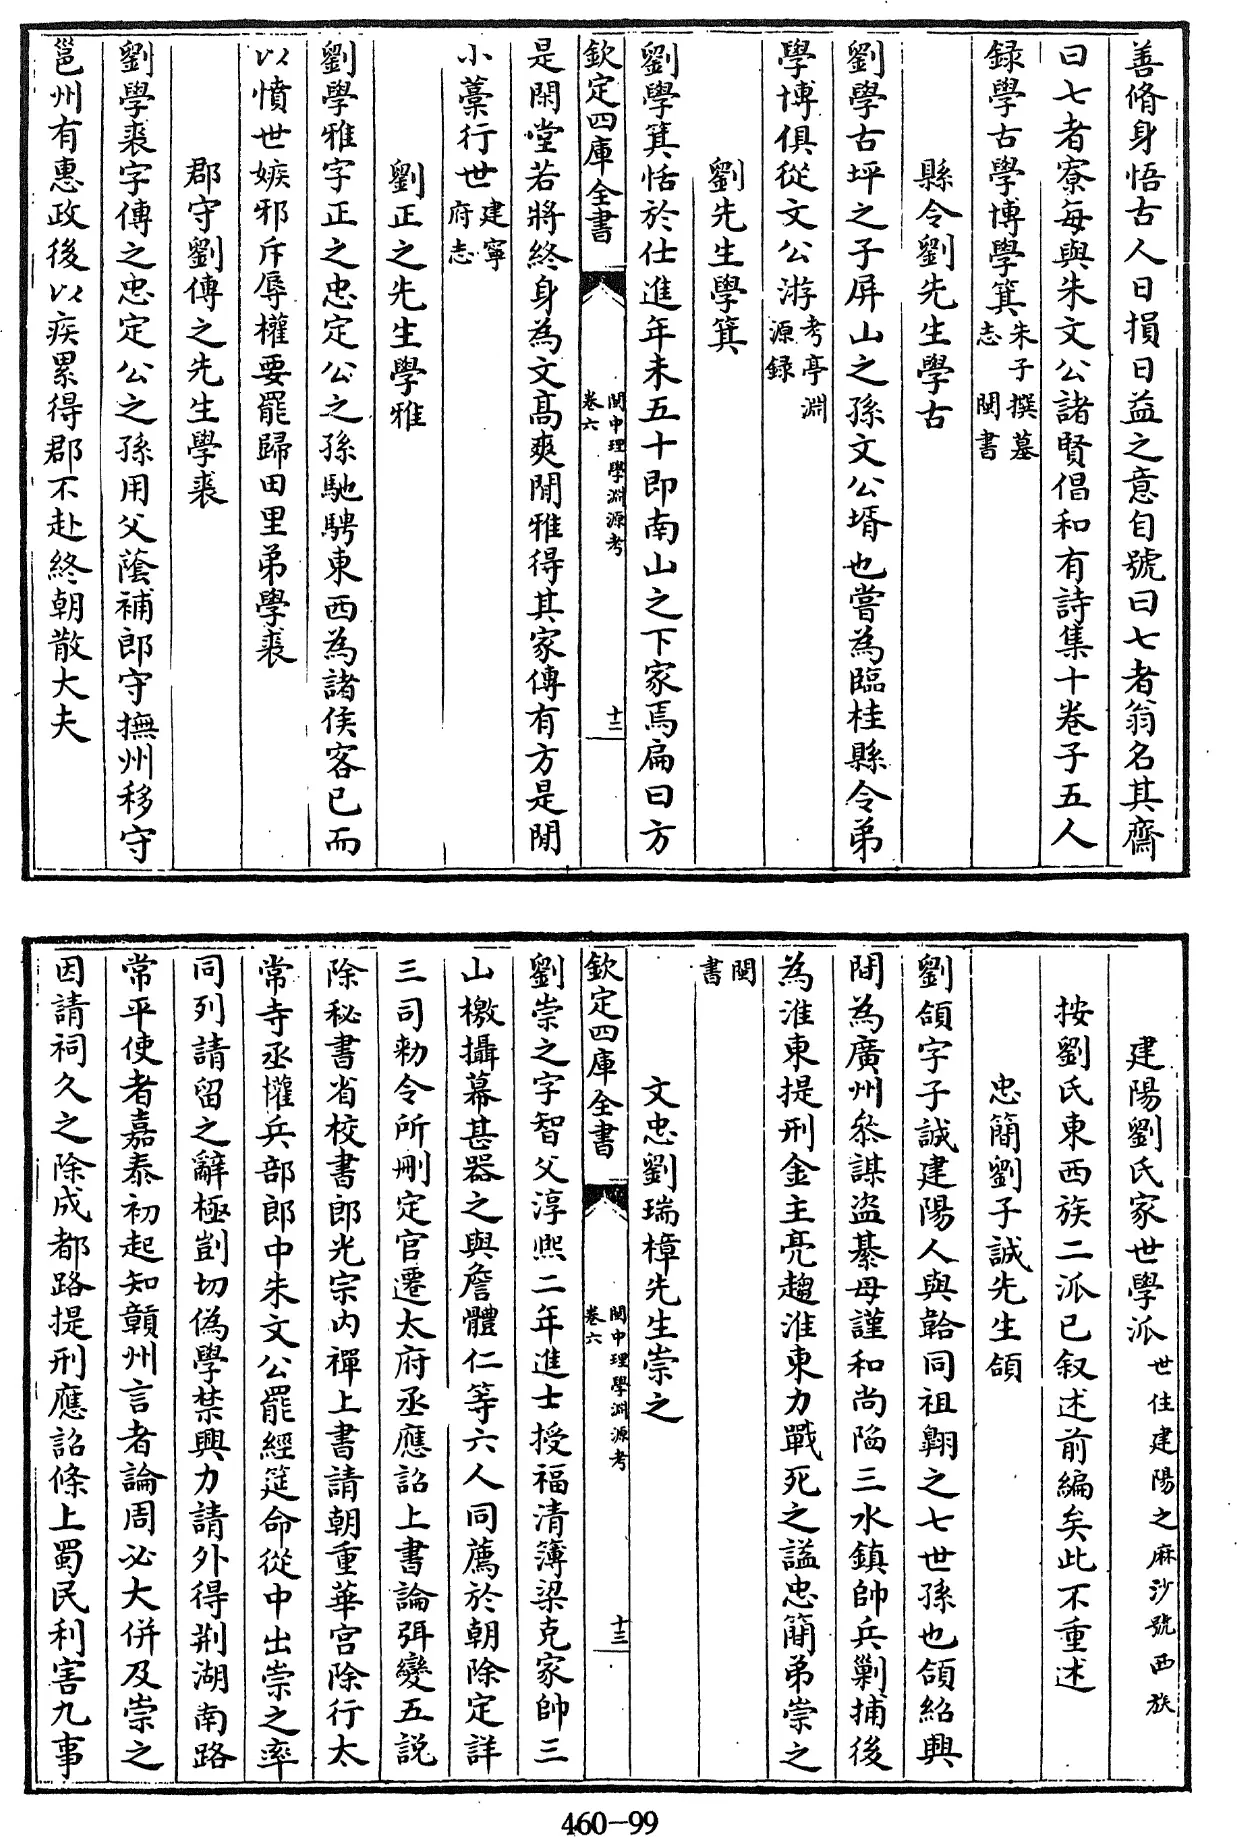 善脩身悟古人日損日益之意自號曰七者翁名其齋
曰七者寮每與朱文公諸賢倡和有詩集十卷子五人
録學古學博學箕朱子撰墓志 閩書
縣令劉先生學古
劉學古坪之子屏山之孫文公壻也嘗為臨桂縣令弟
學博俱從文公游考亭淵源録
劉先生學箕
劉學箕恬於仕進年未五十即南山之下家焉扁曰方
欽定四庫全書
閩中理學淵源考
卷六
十二
是閑堂若將終身為文高爽閒雅得其家傳有方是閒
小藁行世建寧府志
劉正之先生學雅
劉學雅字正之忠定公之孫馳騁東西為諸侯客已而
以憤世嫉邪斥辱權要罷歸田里弟學裘
郡守劉傳之先生學裘
劉學裘字傳之忠定公之孫用父蔭補郎守撫州移守
邕州有惠政後以疾累得郡不赴終朝散大夫
建陽劉氏家世學派世住建陽之麻沙號西族
按劉氏東西族二派已叙述前編矣此不重述
忠簡劉子誠先生頜
劉頜字子誠建陽人與韐同祖翺之七世孫也頜紹興
間為廣州叅謀盗綦母謹和尚陷三水鎮帥兵剿捕後
為淮東提刑金主亮趨淮東力戰死之諡忠簡弟崇之
閩書
文忠劉瑞樟先生崇之
欽定四庫全書
閩中理學淵源考
卷六
十三
劉崇之字智父淳熙二年進士授福清簿梁克家帥三
山檄攝幕甚器之與詹體仁等六人同薦於朝除定詳
三司勑令所刪定官遷太府丞應詔上書論弭變五説
除秘書省校書郎光宗内禪上書請朝重華宮除行太
常寺丞懽兵部郎中朱文公罷經筵命從中出崇之率
同列請留之辭極剴切偽學禁興力請外得荆湖南路
常平使者嘉泰初起知贛州言者論周必大併及崇之
因請祠久之除成都路提刑應詔條上蜀民利害九事
460-99